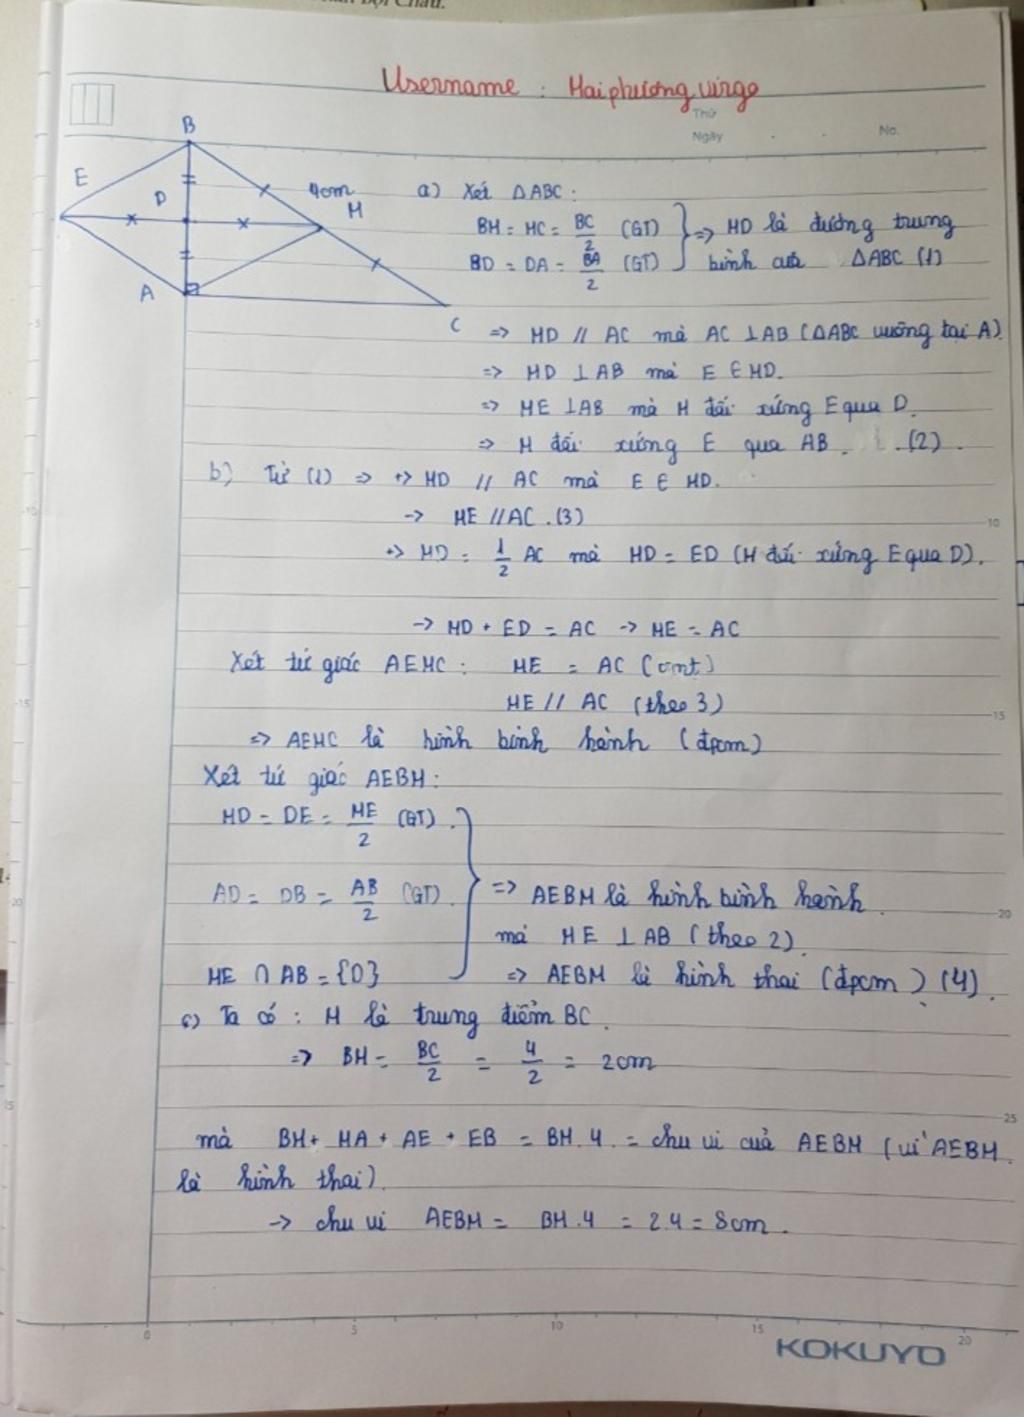 Username : Haiphương virgo
Thứ
Ngày . . No.
B
E
D
4cm
M
A
C
a) Xét ΔABC :
BM = MC = BC/2 (GT)
BD = DA = BA/2 (GT)
=> MD là đường trung
bình của ΔABC (1)
=> MD // AC mà AC ⊥ AB (ΔABC vuông tại A)
=> MD ⊥ AB mà E ∈ MD.
=> ME ⊥ AB mà M đối xứng E qua D.
=> M đối xứng E qua AB . (2).
b) Từ (1) => +> MD // AC mà E ∈ MD.
-> ME // AC . (3)
+> MD = 1/2 AC mà MD = ED (M đối xứng E qua D).
-> MD + ED = AC -> ME = AC
Xét tứ giác AEMC : ME = AC (cmt)
ME // AC (theo 3)
=> AEMC là hình bình hành (đpcm)
Xét tứ giác AEBM :
MD = DE = ME/2 (GT).
AD = DB = AB/2 (GT).
ME ∩ AB = {D}
=> AEBM là hình bình hành.
mà ME ⊥ AB (theo 2).
=> AEBM là hình thai (đpcm) (4).
c) Ta có : M là trung điểm BC.
=> BM = BC/2 = 4/2 = 2cm
mà BM + MA + AE + EB = BM.4 = chu vi của AEBM (vì AEBM
là hình thai).
-> chu vi AEBM = BM.4 = 2.4 = 8cm.
10
15
20
25
0 5 10 15 20
KOKUYO